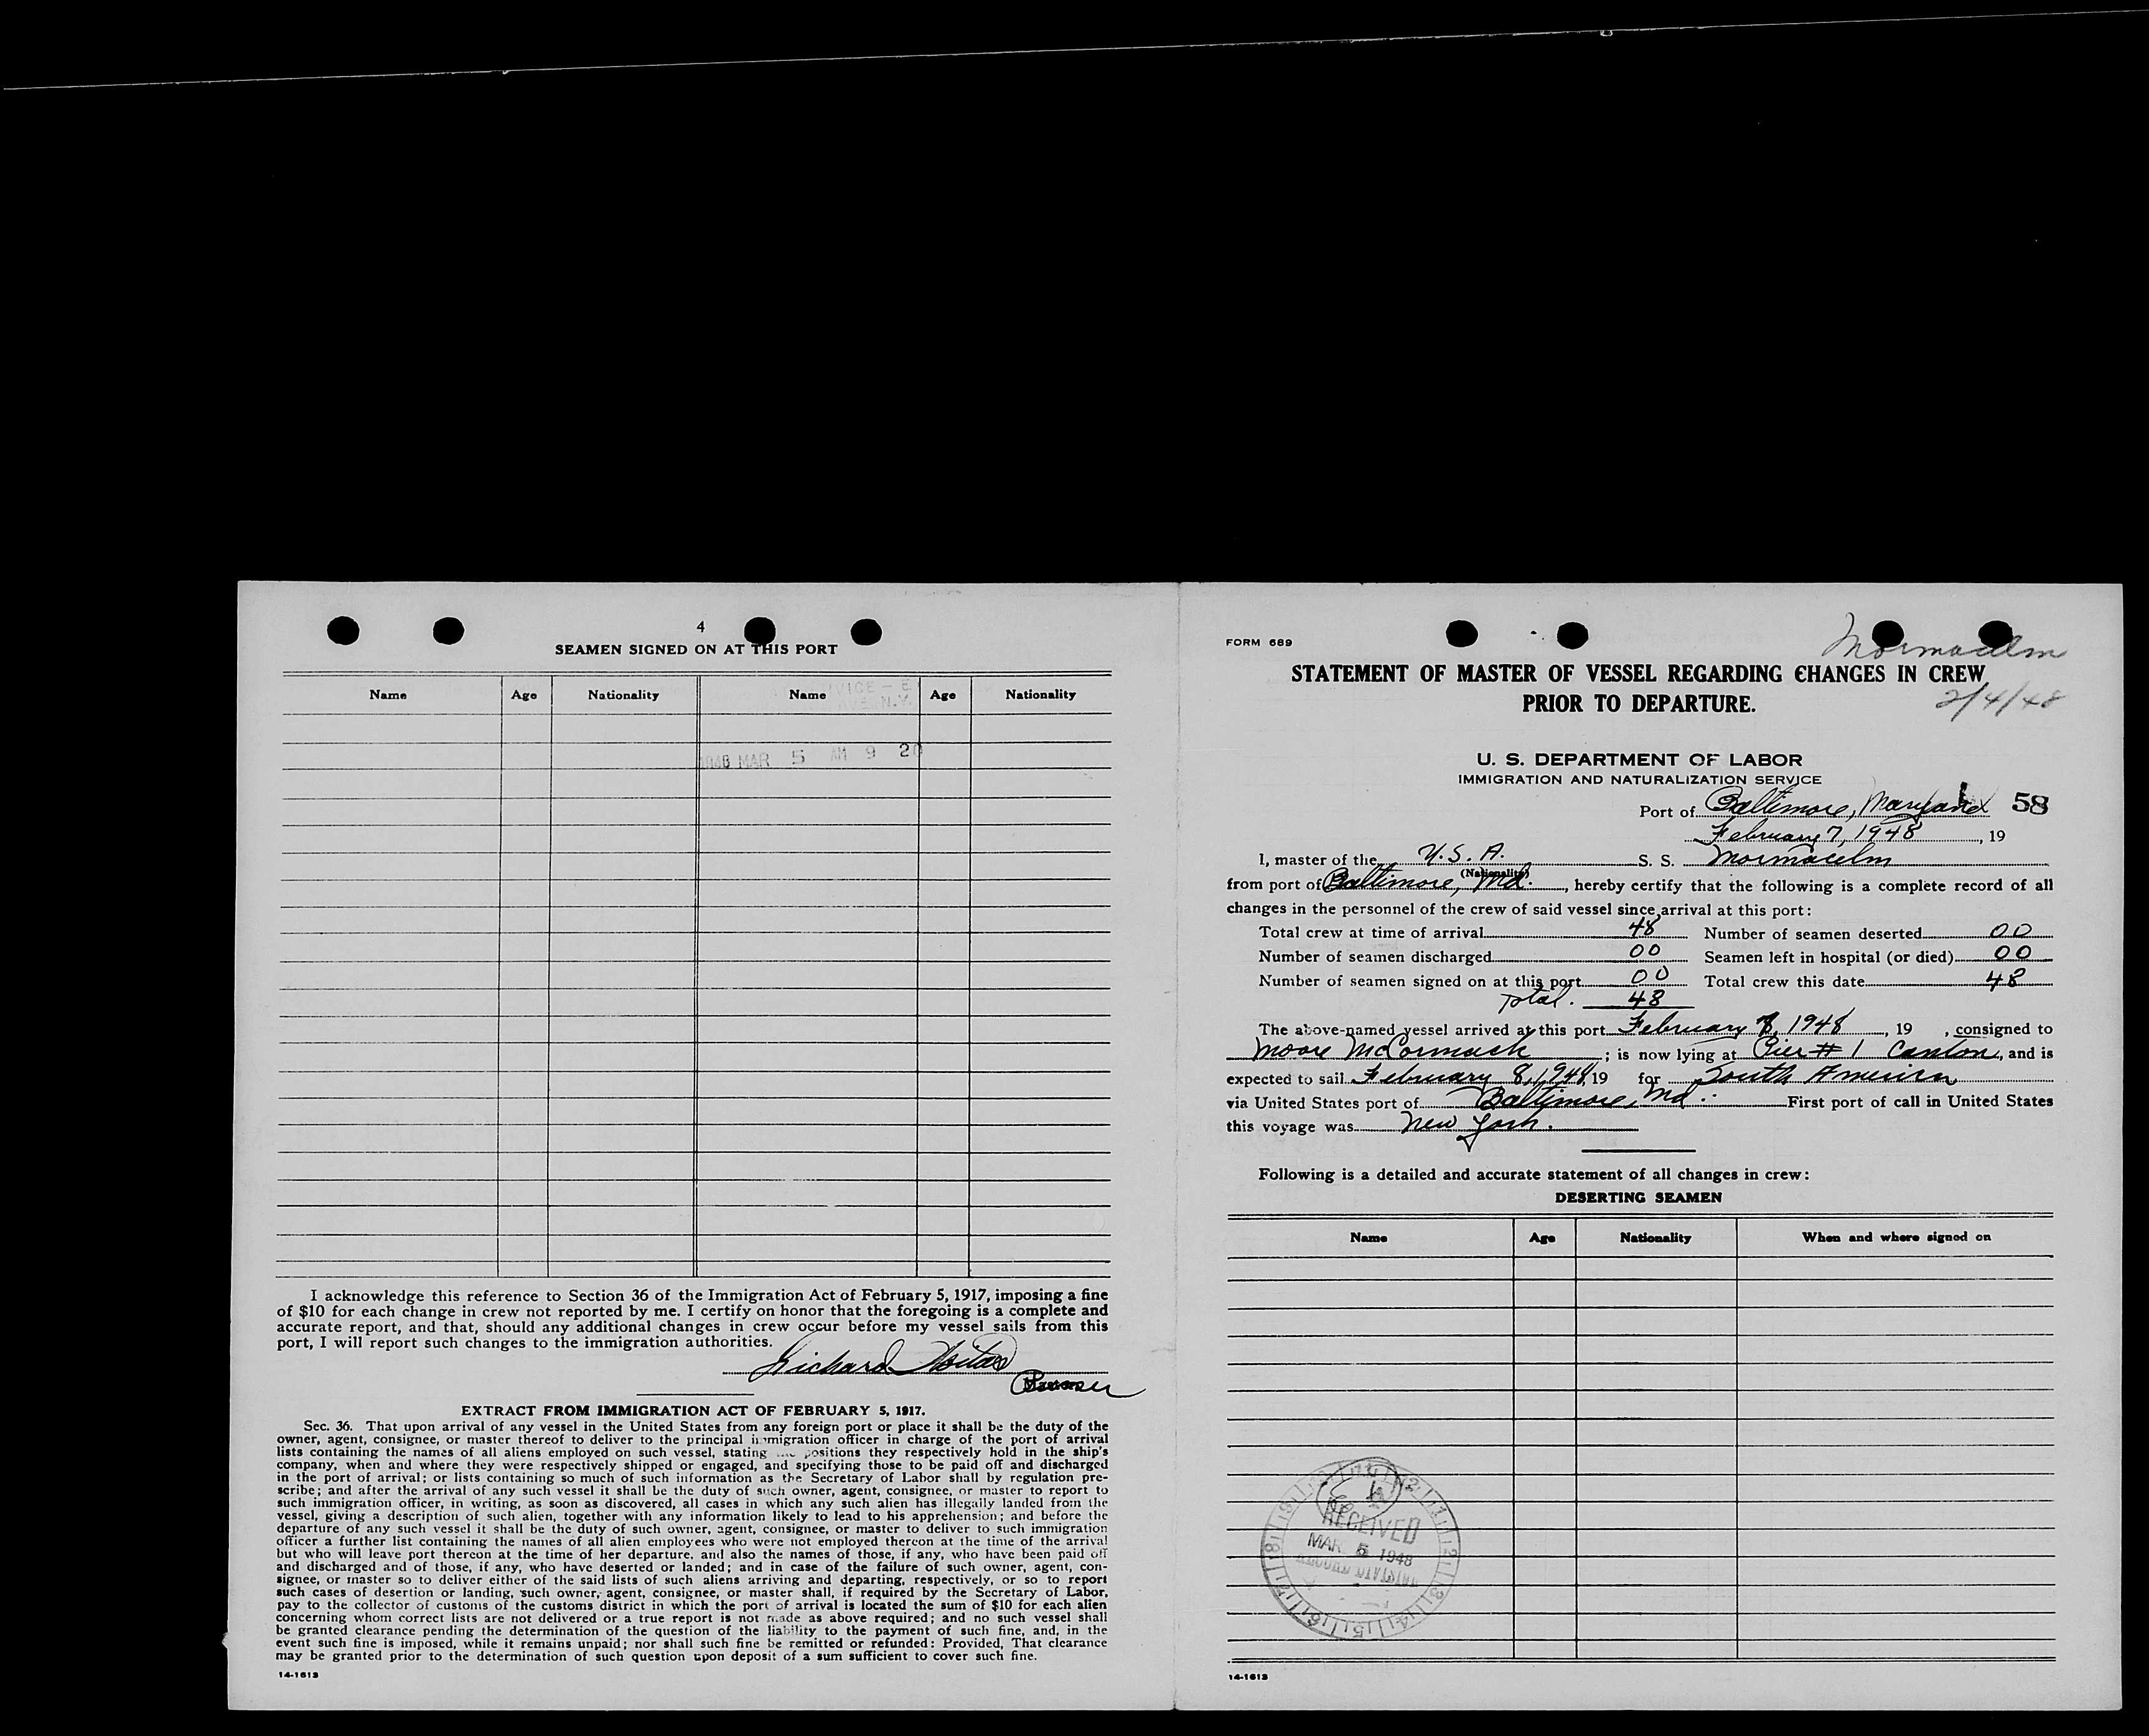 4
SEAMEN SIGNED ON AT THIS PORT
Name Age Nationality Name Age Nationality
VICE — E
AVE N.Y.
1948 MAR 5 AM 9 20
I acknowledge this reference to Section 36 of the Immigration Act of February 5, 1917, imposing a fine
of $10 for each change in crew not reported by me. I certify on honor that the foregoing is a complete and
accurate report, and that, should any additional changes in crew occur before my vessel sails from this
port, I will report such changes to the immigration authorities.
Richard
Purser
EXTRACT FROM IMMIGRATION ACT OF FEBRUARY 5, 1917.
Sec. 36. That upon arrival of any vessel in the United States from any foreign port or place it shall be the duty of the
owner, agent, consignee, or master thereof to deliver to the principal immigration officer in charge of the port of arrival
lists containing the names of all aliens employed on such vessel, stating the positions they respectively hold in the ship's
company, when and where they were respectively shipped or engaged, and specifying those to be paid off and discharged
in the port of arrival; or lists containing so much of such information as the Secretary of Labor shall by regulation pre-
scribe; and after the arrival of any such vessel it shall be the duty of such owner, agent, consignee, or master to report to
such immigration officer, in writing, as soon as discovered, all cases in which any such alien has illegally landed from the
vessel, giving a description of such alien, together with any information likely to lead to his apprehension; and before the
departure of any such vessel it shall be the duty of such owner, agent, consignee, or master to deliver to such immigration
officer a further list containing the names of all alien employees who were not employed thereon at the time of the arrival
but who will leave port thereon at the time of her departure, and also the names of those, if any, who have been paid off
and discharged and of those, if any, who have deserted or landed; and in case of the failure of such owner, agent, con-
signee, or master so to deliver either of the said lists of such aliens arriving and departing, respectively, or so to report
such cases of desertion or landing, such owner, agent, consignee, or master shall, if required by the Secretary of Labor,
pay to the collector of customs of the customs district in which the port of arrival is located the sum of $10 for each alien
concerning whom correct lists are not delivered or a true report is not made as above required; and no such vessel shall
be granted clearance pending the determination of the question of the liability to the payment of such fine, and, in the
event such fine is imposed, while it remains unpaid; nor shall such fine be remitted or refunded: Provided, That clearance
may be granted prior to the determination of such question upon deposit of a sum sufficient to cover such fine.
14-1613
FORM 689
Mormacelm
STATEMENT OF MASTER OF VESSEL REGARDING CHANGES IN CREW
PRIOR TO DEPARTURE.
2/4/48
U. S. DEPARTMENT OF LABOR
IMMIGRATION AND NATURALIZATION SERVICE
Port of Baltimore, Maryland 58
February 7, 1948, 19
I, master of the U.S.A. S. S. Mormacelm
(Nationality)
from port of Baltimore, Md., hereby certify that the following is a complete record of all
changes in the personnel of the crew of said vessel since arrival at this port:
Total crew at time of arrival 48 Number of seamen deserted 00
Number of seamen discharged 00 Seamen left in hospital (or died) 00
Number of seamen signed on at this port 00 Total crew this date 48
Total. 48
The above-named vessel arrived at this port February 7, 1948, 19 , consigned to
Moore McCormack; is now lying at Pier # 1 Canton, and is
expected to sail February 8, 1948, 19 for South America
via United States port of Baltimore, Md. First port of call in United States
this voyage was New York.
Following is a detailed and accurate statement of all changes in crew:
DESERTING SEAMEN
Name Age Nationality When and where signed on
RECEIVED
MAR 5 1948
RECORD DIVISION
14-1613